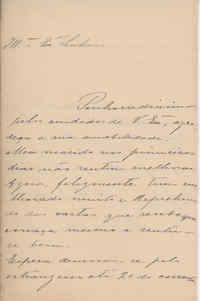 Ill.mo Ex.mo Senhor
Penhoradissimo
pelos cuidados de V. Ex.ª, agra
deço a sua amabilidade.
Meu marido nos primeiros
dias não sentiu melhoras.
Agora felizmente, tem
muito e
das cartas que
começa mesmo a sentir-
se bem.
Espera demorar-se pelo
estrangeiro até 20 do corrente